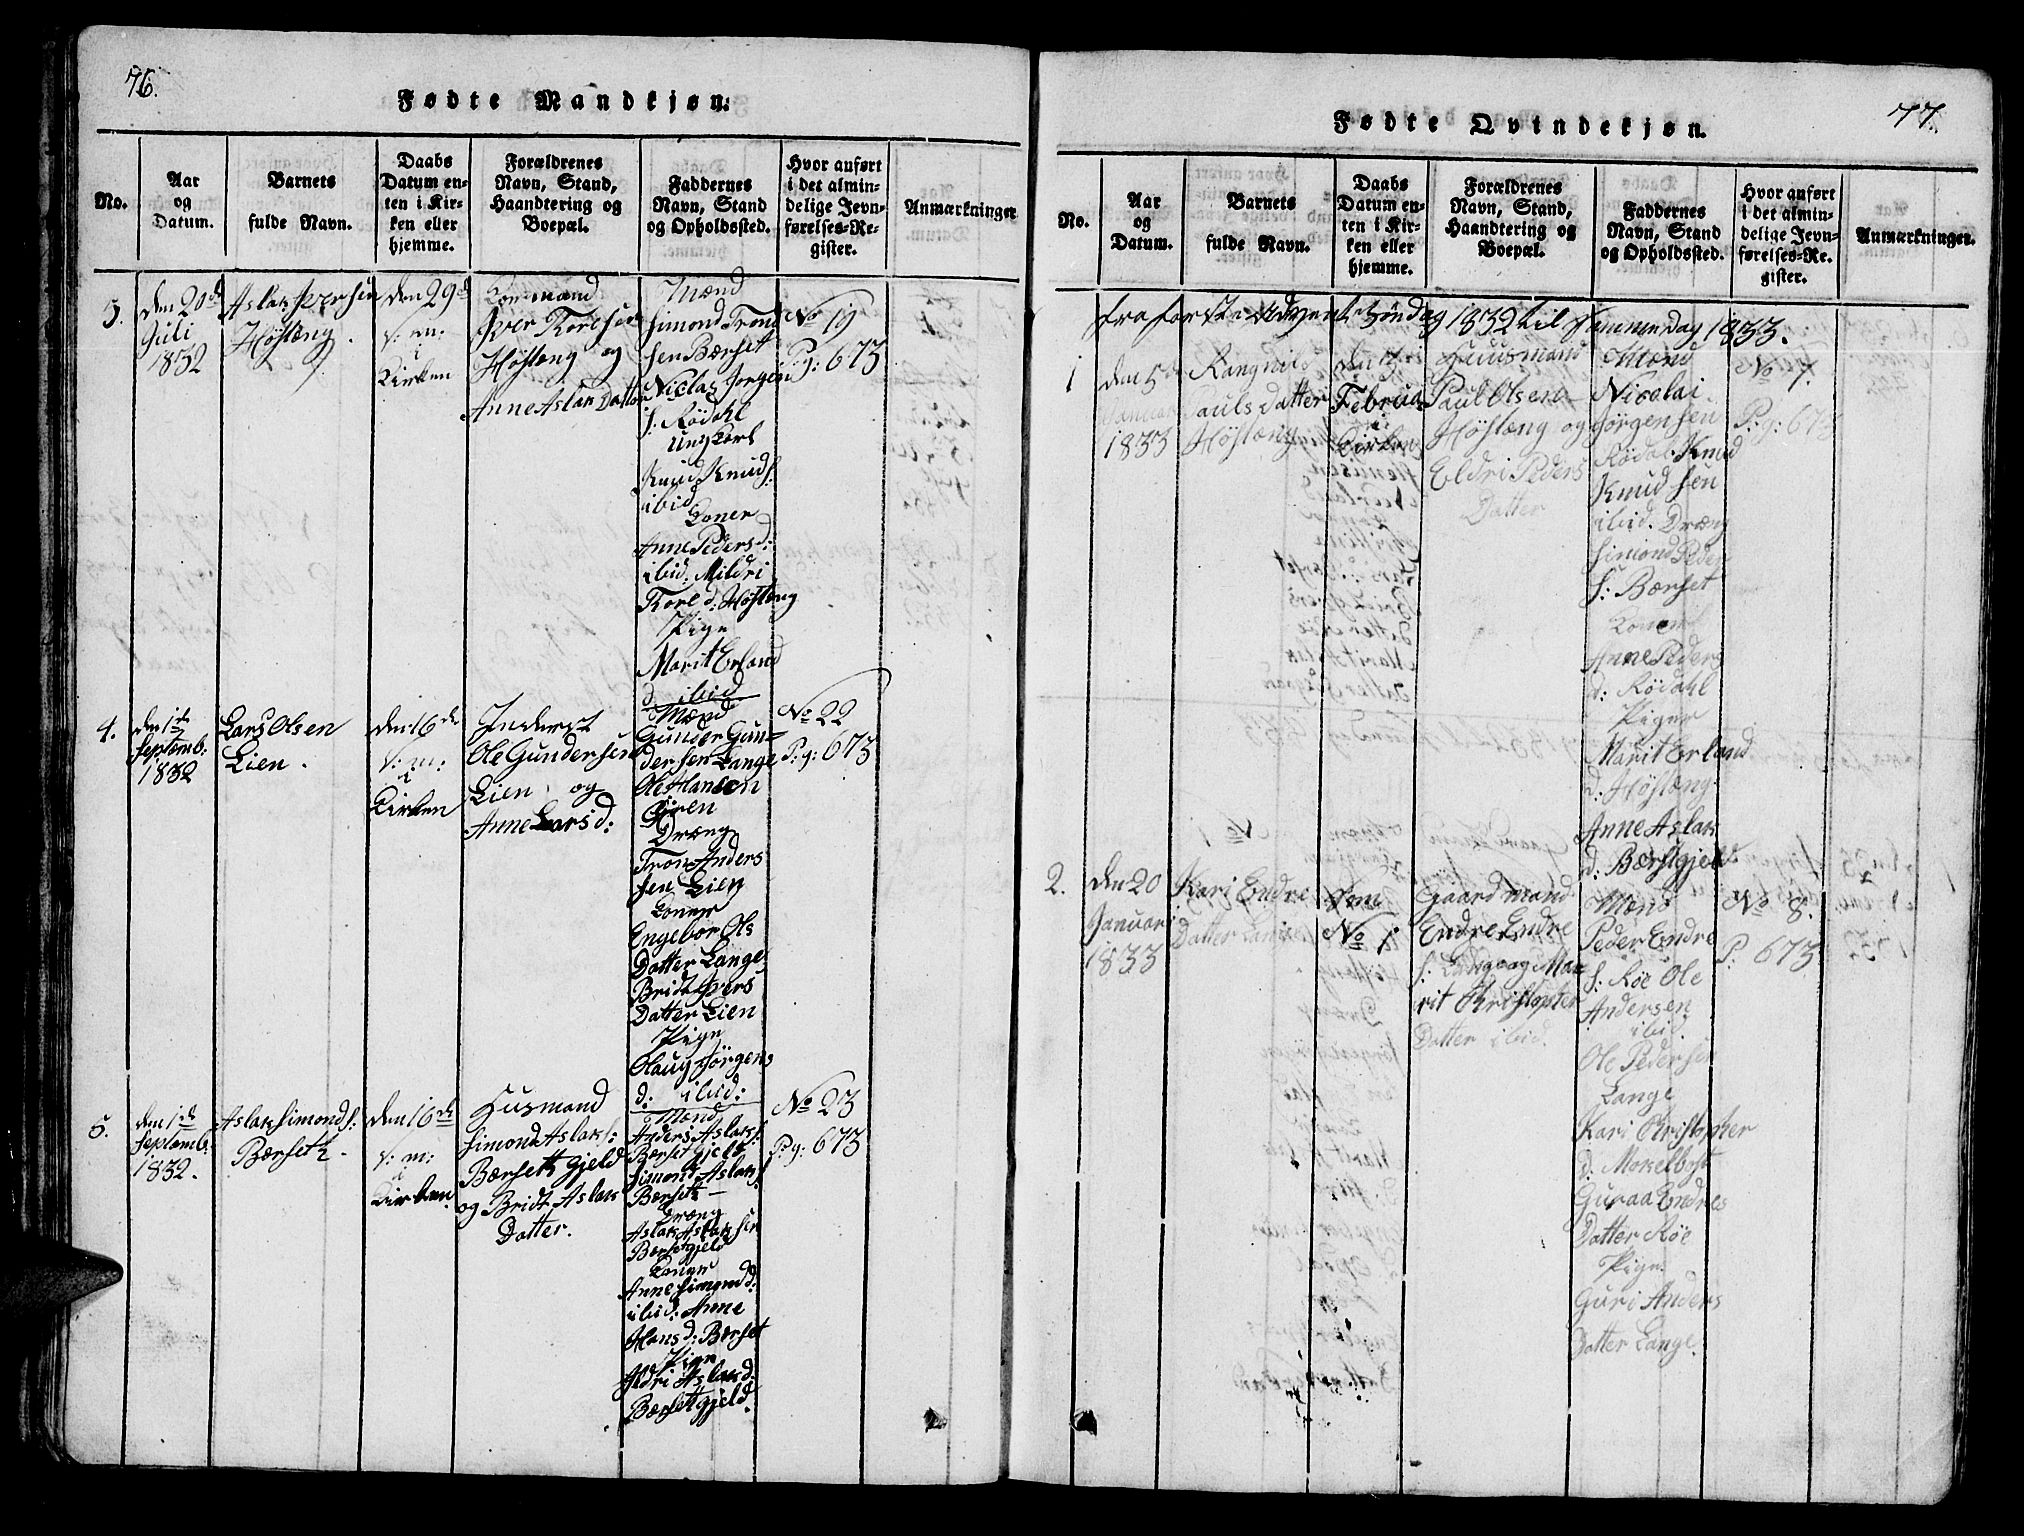 76.
Fødte Mandkjøn.
No.
Aar
og
Datum.
Barnets
fulde Navn.
Daabs
Datum en-
ten i Kir-
ken eller
hjemme.
Forældrenes
Navn, Stand,
Haandtering og
Boepæl.
Faddernes
Navn, Stand
og Opholdssted.
Hvor anført
i det almin-
delige Jevn-
førelses-Re-
gister.
Anmærkninger.
3.
den 20de
Juli
1832
Aslak Iversen
Høstæng.
den 29d
s: m:
i
Kirken
Iver Torelsen
Høstæng og
Anne Aslak Datter
Mænd
Simond Trond
sen Bærset
Nicolai Jørgen
s. Rödahl
Ungkarl
Knud Knuds:
ibid
Koner
Anne Peders d:
ibid. Mildri
Torel d: Høstæng
Pige
Marit Erland
d ibid
No 19
Pg: 673
4.
den 1de
Septemb.
1832
Lars Olsen
Lien.
den 16de
s: m:
i
Kirken
Inderst
Ole Gundersen
Lien og
Anne Lars d:
Mænd
Gunder Gun-
dersen Lange
Ole Hansen
Dræng
Tron Anders
sen Lien
Koner
Engebor Ols
Datter Lange
Bridt Ivers
Datter Lien
Pige
Olaug Jørgens
d: ibid:
No 22
P: g: 673
5.
den 1de
Septemb.
1832.
Aslak Simonds:
Bærseth.
den 16de
s: m:
i
Kirken.
Husmand
Simond Aslaks:
Bærseth Gjeld
og Bridt Aslak
Datter.
Mænd
Anders Aslaks:
Bærset Gjeld
Simond Aslaks
Bærseth
Dræng
Aslak Aslaksen
Bærsetgjeld
Koner
Anne Simond d:
ibid: Anne
Hans d: Bærset
Pige
Ildri Aslak d:
Bærsetgjeld.
No 23
P: g: 673
77.
Fødte Qvindekjøn.
No.
Aar
og
Datum.
Barnets
fulde Navn.
Daabs
Datum en-
ten i Kir-
ken eller
hjemme.
Forældrenes
Navn, Stand,
Haandtering og
Boepæl.
Faddernes
Navn, Stand
og Opholdssted.
Hvor anført
i det almin-
delige Jevn-
førelses-Re-
gister.
Anmærkninger.
fra første Advent Søndag 1832 til samme Dag 1833.
1
den 5te
Januar
1833
Rangnild
Pauls Datter
Høstæng
den 3
Februa
i
Kirken
Huusmand
Paul Olsen
Høstæng og
Eldri Peders
Datter
Mænd
Nicolai
Jørgensen
Rödal Knud
Knudsen
ibid. Dræng
Simond Peder
s: Bærset
Koner
Anne Peders
d: Rödahl
Piger
Marit Erland
d: Høstæng
Anne Aslak
d: Bærsetgjeld
No 7.
P: g: 673
2.
den 20
Januar
1833
Kari Endre
Datter Lange
No 1
Gaardmand
Endre Endre
s: Lange og Ma
rit Christopher
Datter ibid.
Mænd
Peder Endre
s: Röe Ole
Andersen
ibid
Ole Pedersen
Lange
Kari Christopher
d: Mokelbost
Guraa Endres
Datter Röe
Pige.
Guri Anders
Datter Lange.
No 8.
P: 673